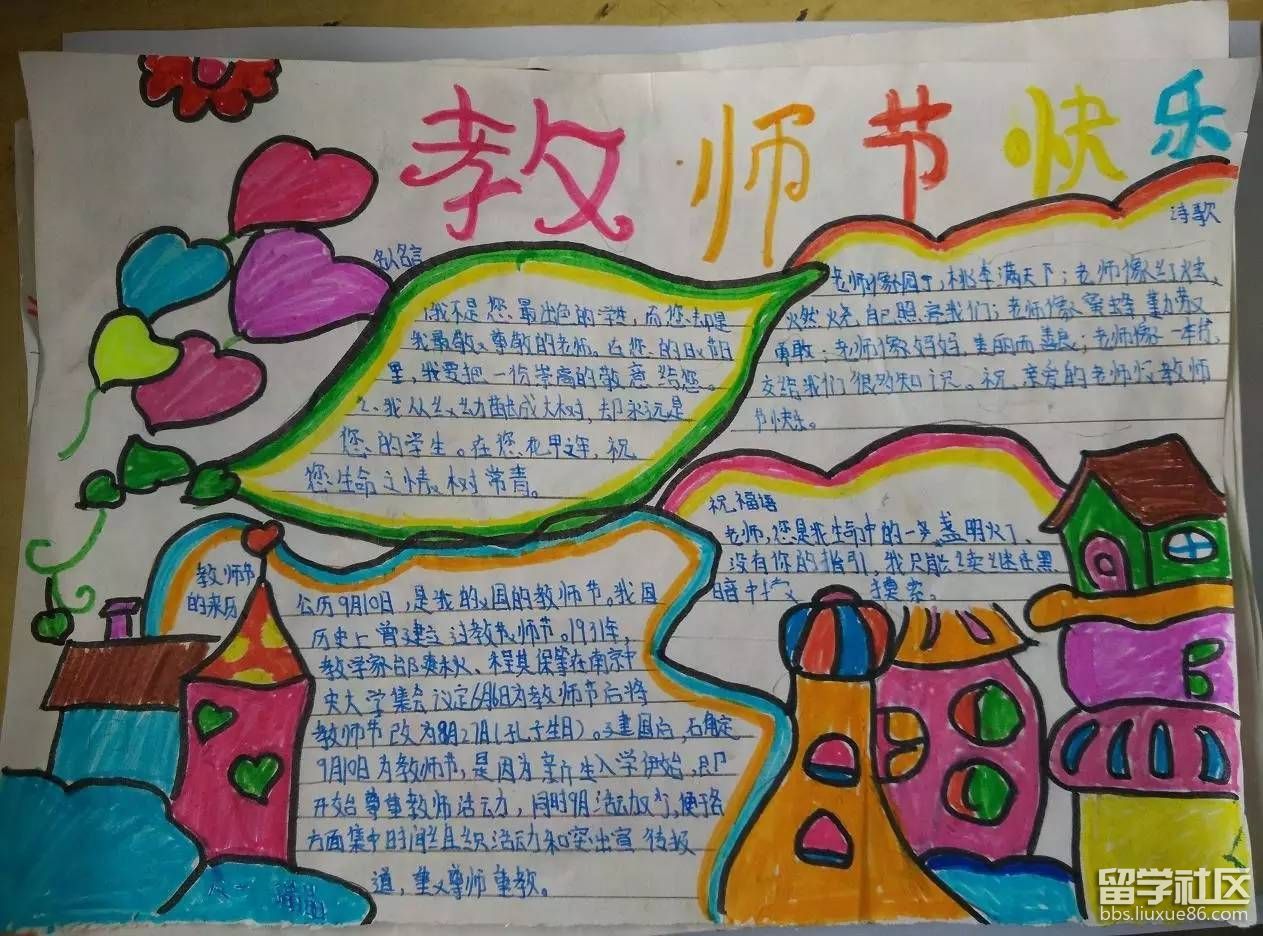 教师节快乐
名人名言
1、我不是您最出色的学生,而您却是
我最敬、尊敬的老师。在您的日、节日
里,我要把一份崇高的敬意给您。
2、我从幼苗成大树,却永远是
您的学生。在您花甲之年,祝
您生命之情树常青。
诗歌
老师像园丁,桃李满天下;老师像红烛,
燃烧自己照亮我们;老师像蜜蜂,勤劳
勇敢;老师像妈妈,美丽而善良;老师像一本书,
交给我们很多知识。祝亲爱的老师们教师
节快乐。
祝福语
老师,您是我生命中的一盏明灯、
没有你的指引,我只能继续在黑
暗中摸索。
教师节
的来历
公历9月10日,是我的国的教师节。我国
历史上曾建立过教节师节。1931年,
教学家邰爽秋、程其保等在南京中
央大学集会议定6月6日为教师节后将
教师节改为8月27日(孔子生日)。建国后,石角定
9月10日为教师节,是因为新生入学伊始,即
开始尊重教师活动,同时9月活动较少,便于各
方面集中时间组织活动和突出宣传报
道,重尊师重教。
留学社区
bbs.liuxue86.com